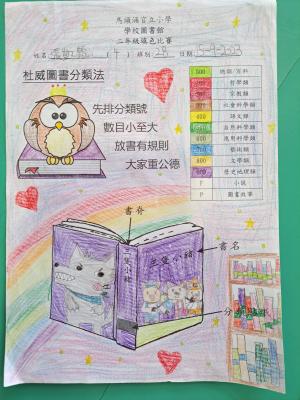 馬頭涌官立小學
學校圖書館
二年級填色比賽
姓名： ( 午 ) 班別：2B 日期：15-9-2023
杜威圖書分類法
先排分類號
數目小至大
放書有規則
大家重公德
000 總類/百科
100 哲學類
200 宗教類
300 社會科學類
400 語文類
500 自然科學類
600 應用科學類
700 藝術類
800 文學類
900 歷史地理類
F 小說
P 圖畫故事
書脊
書名
三隻小豬
三隻小豬